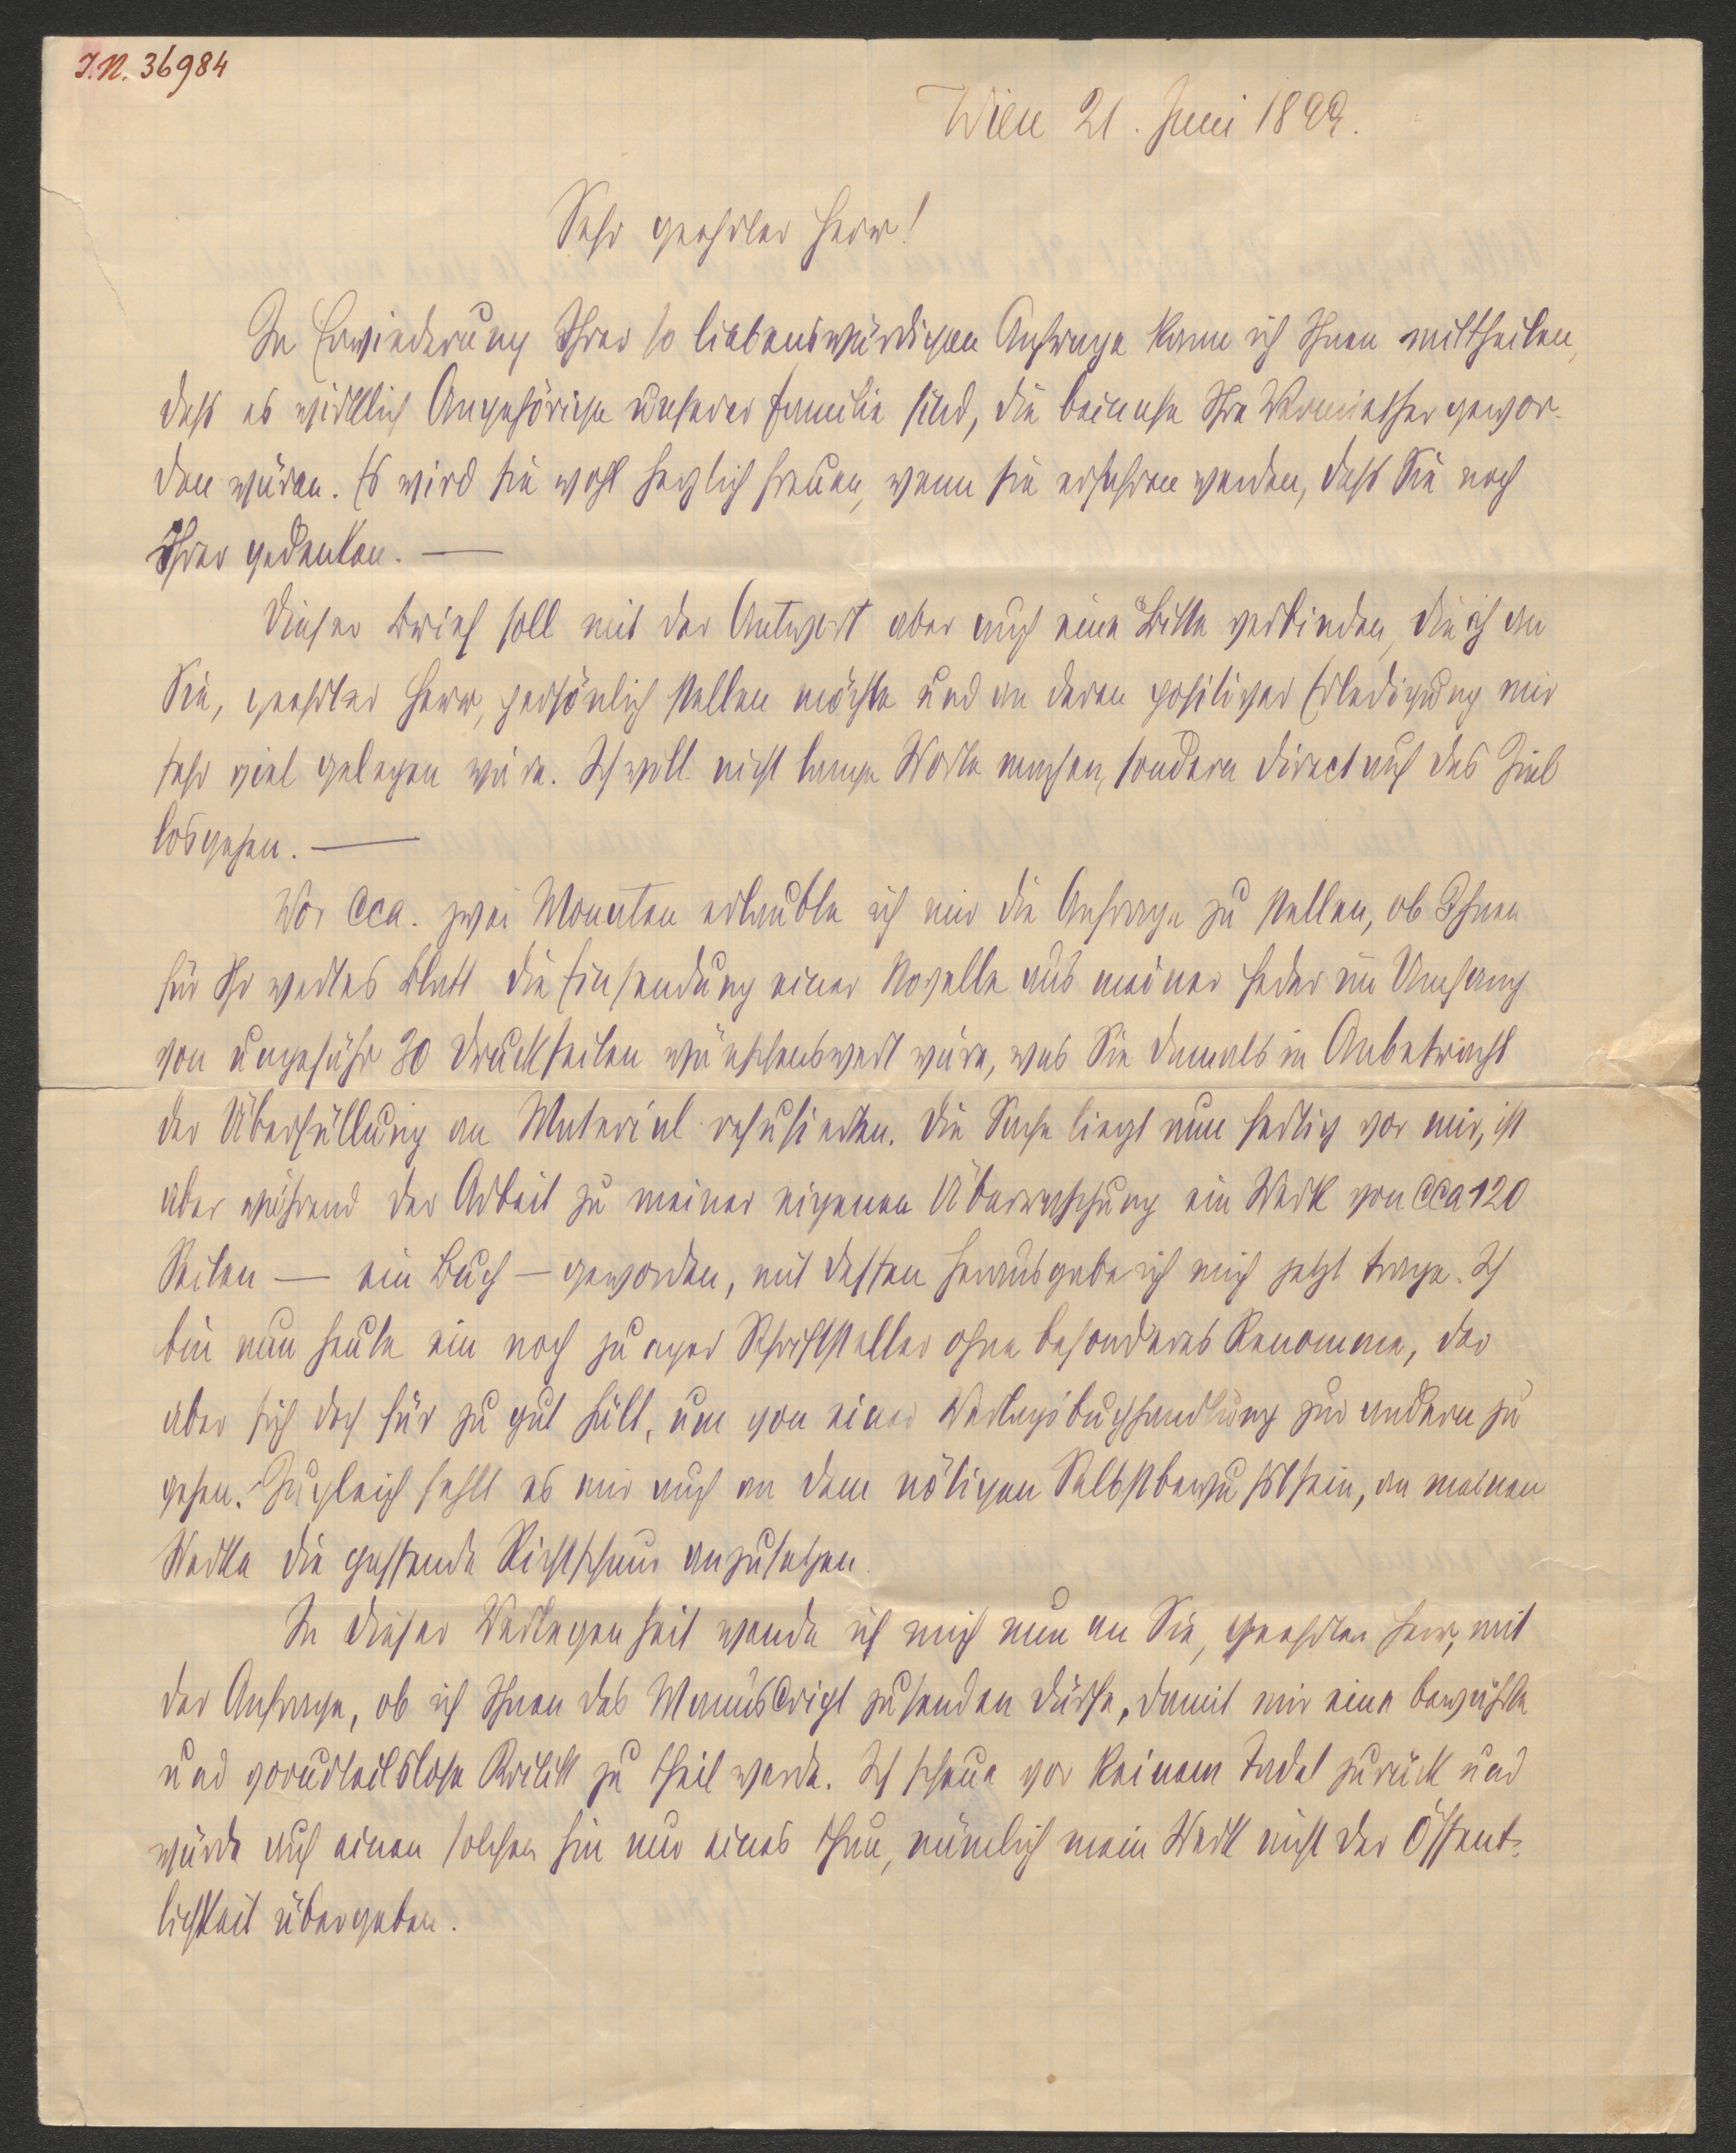 I.N. 36984
Wien 21. Juni 1899.
Sehr geehrter Herr!
In Erwiederung Ihrer so liebenswürdigen Anfrage kann ich Ihnen mittheilen,
dass es wirklich Angehörige unserer Familie sind, die beinahe Ihre Vermiether gewor-
den wären. Es wird sie wohl herzlich freuen, wenn sie erfahren werden, dass Sie noch
Ihrer gedenken. —
Dieser Brief soll mit der Antwort aber auch eine Bitte verbinden, die ich an
Sie, geehrter Herr, persönlich stellen möchte und an deren positiver Erledigung mir
sehr viel gelegen wäre. Ich will nicht lange Worte machen, sondern direct auf das Ziel
losgehen. —
Vor cca. zwei Monaten erlaubte ich mir die Anfrage zu stellen, ob Ihnen
für Ihr wertes Blatt die Einsendung einer Novelle aus meiner Feder im Umfang
von ungefähr 30 Druckseiten wünschenswert wäre, was Sie damals in Anbetracht
der Überfüllung an Material refusierten. Die Sache liegt nun fertig vor mir, ist
aber während der Arbeit zu meiner eigenen Überraschung ein Werk von cca 120
Seiten — ein Buch — geworden, mit dessen Herausgabe ich mich jetzt trage. Ich
bin nun heute ein noch junger Schriftsteller ohne besonderes Renomme, der
aber sich doch für zu gut hält, um von einer Verlagsbuchhandlung zur andern zu
gehen. Zugleich fehlt es mir auch an dem nötigen Selbstbewusstsein, an meinen
Werke die passende Richtschnur anzusetzen.
In dieser Verlegenheit wende ich mich nun an Sie, geehrter Herr, mit
der Anfrage, ob ich Ihnen das Manuscript zusenden dürfe, damit mir eine bewährte
und vorurteilslose Kritik zu theil werde. Ich scheue vor keinem Tadel zurück und
würde auf einen solchen hin nur eines thun, nämlich mein Werk nicht der Öffent-
lichkeit übergeben.